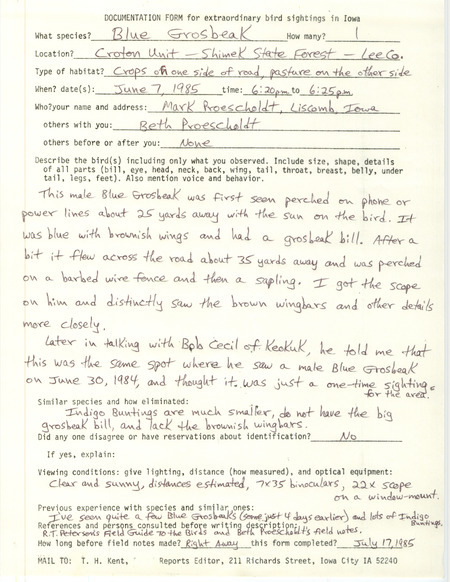 DOCUMENTATION FORM for extraordinary bird sightings in Iowa
What species? Blue Grosbeak How many? 1
Location? Croton Unit - Shimek State Forest - Lee Co.
Type of habitat? Crops on one side of road, pasture on the other side
When? date(s): June 7, 1985 time: 6:20pm to 6:25pm
Who? your name and address: Mark Proescholdt, Liscomb, Iowa
others with you: Beth Proescholdt
others before or after you: None
Describe the bird(s) including only what you observed. Include size, shape, details
of all parts (bill, eye, head, neck, back, wing, tail, throat, breast, belly, under
tail, legs, feet). Also mention voice and behavior.
This male Blue Grosbeak was first seen perched on phone or
power lines about 25 yards away with the sun on the bird. It
was blue with brownish wings and had a grosbeak bill. After a
bit it flew across the road about 35 yards away and was perched
on a barbed wire fence and then a sapling. I got the scope
on him and distinctly saw the brown wingbars and other details
more closely.
Later in talking with Bob Cecil of Keokuk, he told me that
this was the same spot where he saw a male Blue Grosbeak
on June 30, 1984, and thought it was just a one-time sighting
for the area.
Similar species and how eliminated:
Indigo Buntings are much smaller, do not have the big
grosbeak bill, and lack the brownish wingbars.
Did any one disagree or have reservations about identification? No
If yes, explain:
Viewing conditions: give lighting, distance (how measured), and optical equipment:
Clear and sunny, distances estimated, 7x35 binoculars, 22x scope
on a window-mount.
Previous experience with species and similar ones:
I've seen quite a few Blue Grosbeaks (some just 4 days earlier) and lots of Indigo
Buntings,
References and persons consulted before writing description:
R.T. Peterson's Field Guide to the Birds and Beth Proescholdt's field notes.
How long before field notes made? Right Away this form completed? July 17, 1985
MAIL TO: T. H. Kent, Reports Editor, 211 Richards Street, Iowa City IA 52240